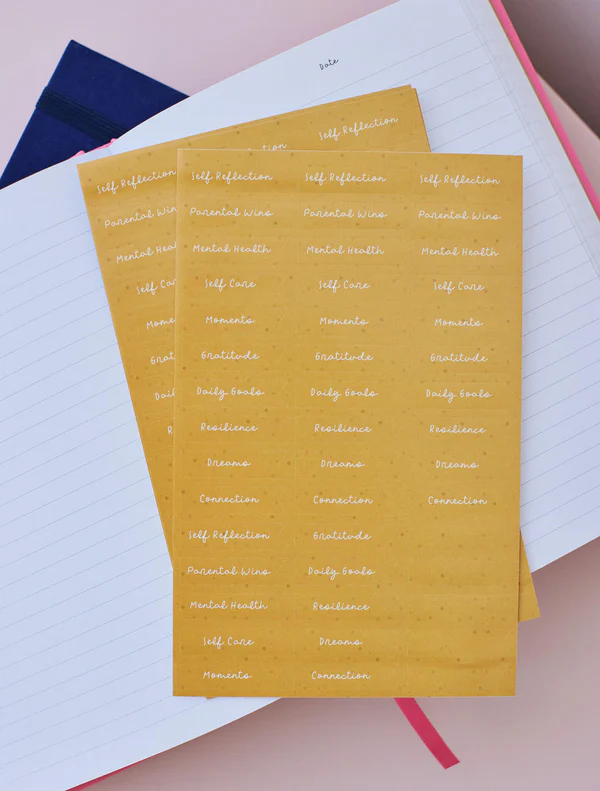 Date
Self Reflection
Self Reflection
Parental Wins
Mental
Self
Self Reflection Self Reflection Self Reflection
Parental Wins Parental Wins Parental Wins
Mental Health Mental Health Mental Health
Self Care Self Care Self Care
Moments Moments Moments
Gratitude Gratitude Gratitude
Daily Goals Daily Goals Daily Goals
Resilience Resilience Resilience
Dreams Dreams Dreams
Connection Connection Connection
Self Reflection Gratitude
Parental Wins Daily Goals
Mental Health Resilience
Self Care Dreams
Moments Connection